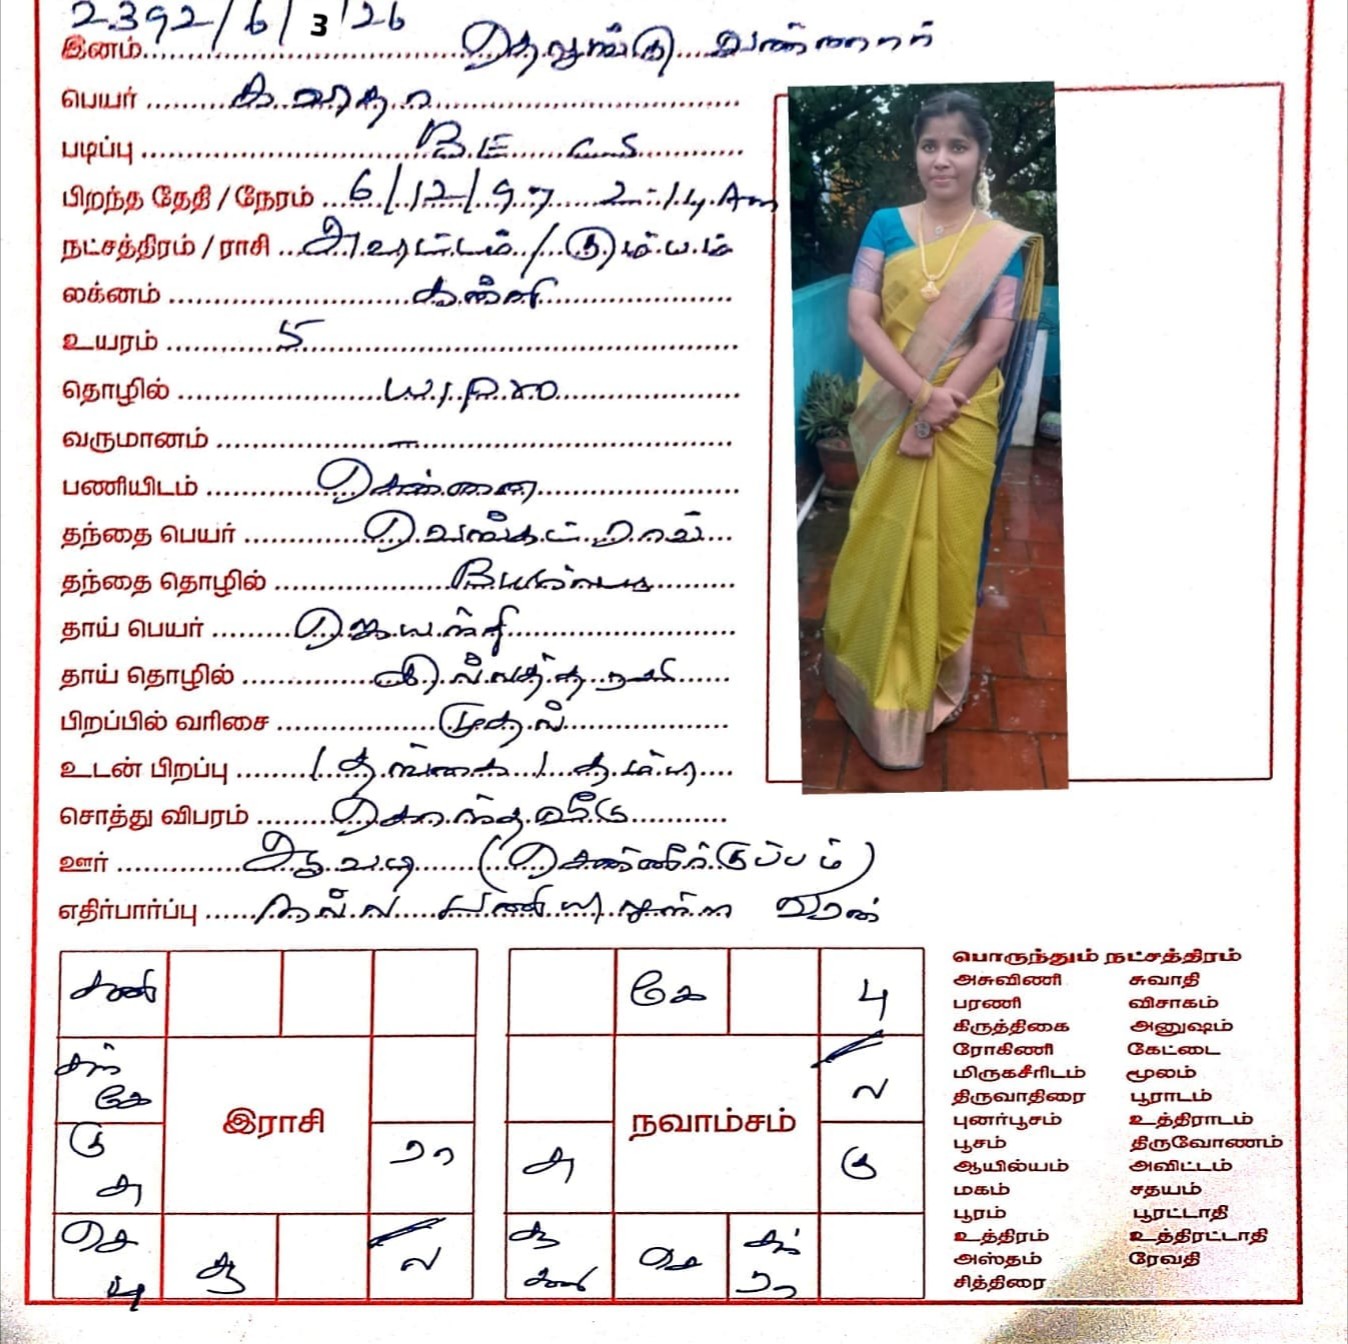 2392/6/3/26
இனம் தெலுங்கு வண்ணார்
பெயர் கவிதா
படிப்பு B.E CS
பிறந்த தேதி / நேரம் 6/12/97 2.14.Am
நட்சத்திரம் / ராசி அவிட்டம் / கும்பம்
லக்னம் கன்னி
உயரம் 5
தொழில் WIPRO
வருமானம் –
பணியிடம் சென்னை
தந்தை பெயர் வெங்கட்ராவ்
தந்தை தொழில்
தாய் பெயர் ஜெயன்தி
தாய் தொழில் இல்லத்தரசி
பிறப்பில் வரிசை முதல்
உடன் பிறப்பு 1 தங்கை 1 தம்பி
சொத்து விபரம் சொந்த வீடு
ஊர் ஆவடி (சென்னீர்குப்பம்)
எதிர்பார்ப்பு நல்ல பணியிலுள்ள வரன்
சனி
சுக் கே
கு சு
செ பு
சூ
ல
ரா
இராசி
கே
பு
ல
சு
கு
சூ சனி
செ
சந் ரா
நவாம்சம்
பொருந்தும் நட்சத்திரம்
அசுவிணி சுவாதி
பரணி விசாகம்
கிருத்திகை அனுஷம்
ரோகிணி கேட்டை
மிருகசீரிடம் மூலம்
திருவாதிரை பூராடம்
புனர்பூசம் உத்திராடம்
பூசம் திருவோணம்
ஆயில்யம் அவிட்டம்
மகம் சதயம்
பூரம் பூரட்டாதி
உத்திரம் உத்திரட்டாதி
அஸ்தம் ரேவதி
சித்திரை